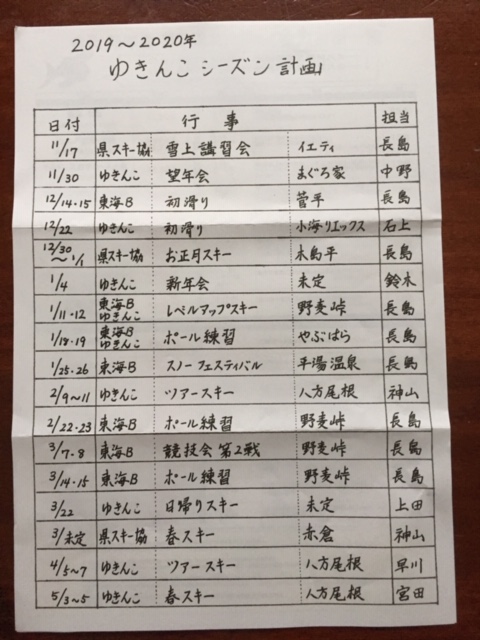 2019〜2020年
ゆきんこシーズン計画
日付 行事 担当
11/17 県スキー協 雪上講習会 イエティ 長島
11/30 ゆきんこ 望年会 まぐろ家 中野
12/14・15 東海B 初滑り 菅平 長島
12/22 ゆきんこ 初滑り 小海リエックス 石上
12/30〜1/1 県スキー協 お正月スキー 木島平 長島
1/4 ゆきんこ 新年会 未定 鈴木
1/11・12 東海B ゆきんこ レベルアップスキー 野麦峠 長島
1/18・19 東海B ゆきんこ ポール練習 やぶはら 長島
1/25・26 東海B スノーフェスティバル 平湯温泉 長島
2/9〜11 ゆきんこ ツアースキー 八方尾根 神山
2/22・23 東海B ポール練習 野麦峠 長島
3/7・8 東海B 競技会第2戦 野麦峠 長島
3/14・15 東海B ポール練習 野麦峠 長島
3/22 ゆきんこ 日帰りスキー 未定 上田
3/未定 県スキー協 春スキー 赤倉 神山
4/5〜7 ゆきんこ ツアースキー 八方尾根 早川
5/3〜5 ゆきんこ 春スキー 八方尾根 宮田